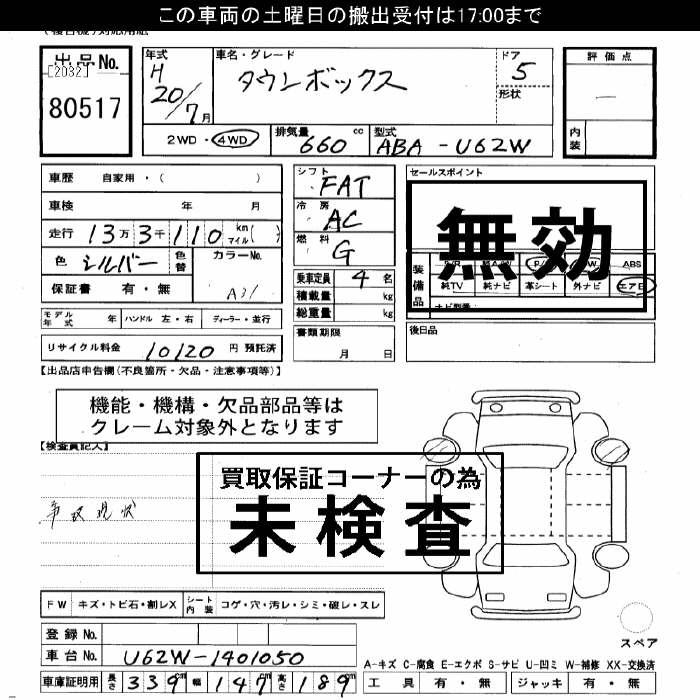 この車両の土曜日の搬出受付は17:00まで
出品No.
[2032]
80517
年式
H
20/7月
車名・グレード
タウンボックス
ドア
5
形状
評価点
内装
2WD・4WD
排気量
660 cc
型式
ABA-U62W
車歴 自家用・( )
車検 年 月
走行 13万3千110 km マイル( )
色 シルバー 色替
カラーNo.
A31
保証書 有・無
シフト
FAT
冷房
AC
燃料
G
乗車定員 4 名
積載量 kg
総重量 kg
セールスポイント
無効
装備品
ABS
純TV 純ナビ 革シート 外ナビ エアB
モデル年式 年 ハンドル 左・右 ディーラー・並行
リサイクル料金 10120 円 預託済
書類期限
月 日
後日品
【出品店申告欄(不良箇所・欠品・注意事項等)】
機能・機構・欠品部品等は
クレーム対象外となります
【検査員記入】
買取保証コーナーの為
未検査
事故現状
FW キズ・トビ石・割レX シート内装 コゲ・穴・汚レ・シミ・破レ・スレ
登録No.
車台No. U62W-1401050
車庫証明用 長さ 339m 幅 147m 高さ 189m
スペア
A-キズ C-腐食 E-エクボ S-サビ U-凹ミ W-補修 XX-交換済
工具 有・無 ジャッキ 有・無